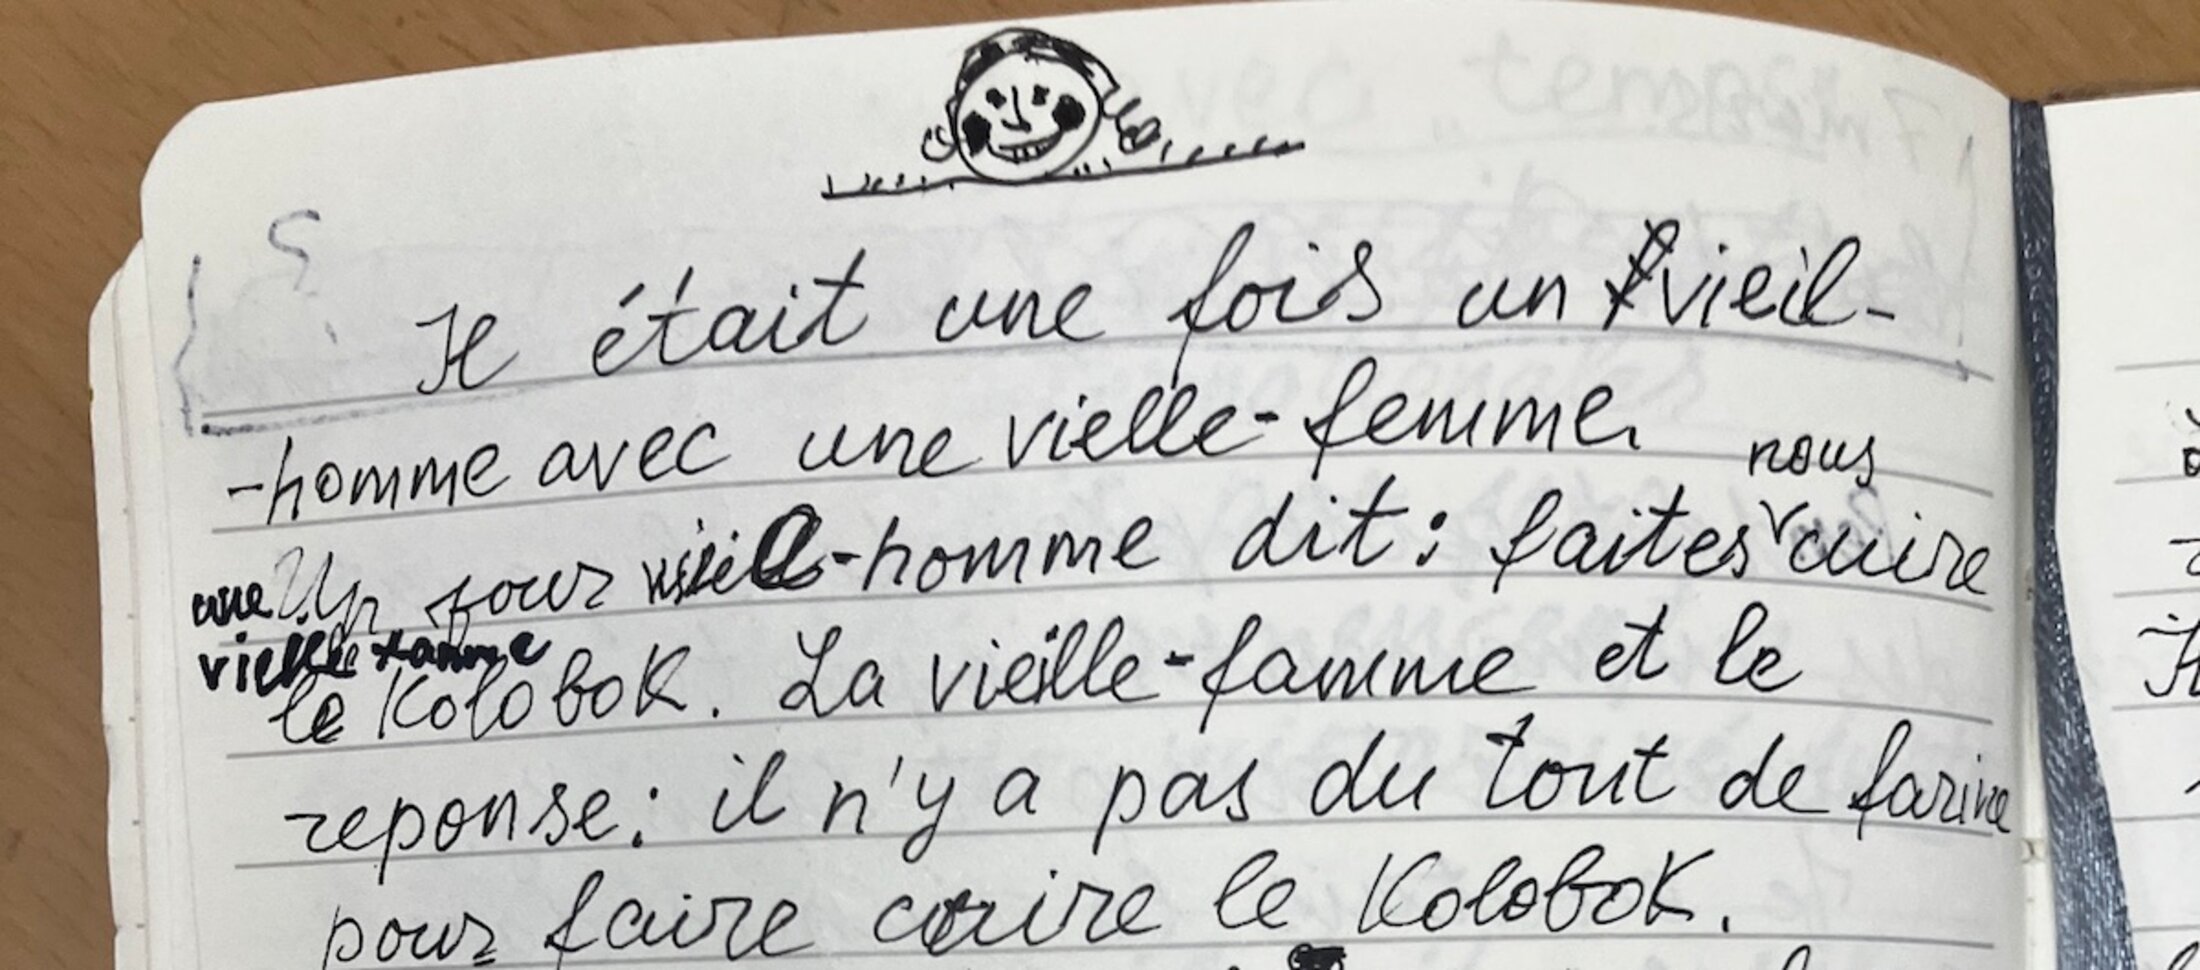 Il était une fois un vieil-
-homme avec une vielle-femme.
nous
Un jour vieil-homme dit: faites cuire
une
vielle famme
le Kolobok. La vieille-famme et le
reponse: il n'y a pas du tout de farine
pour faire cuire le Kolobok.